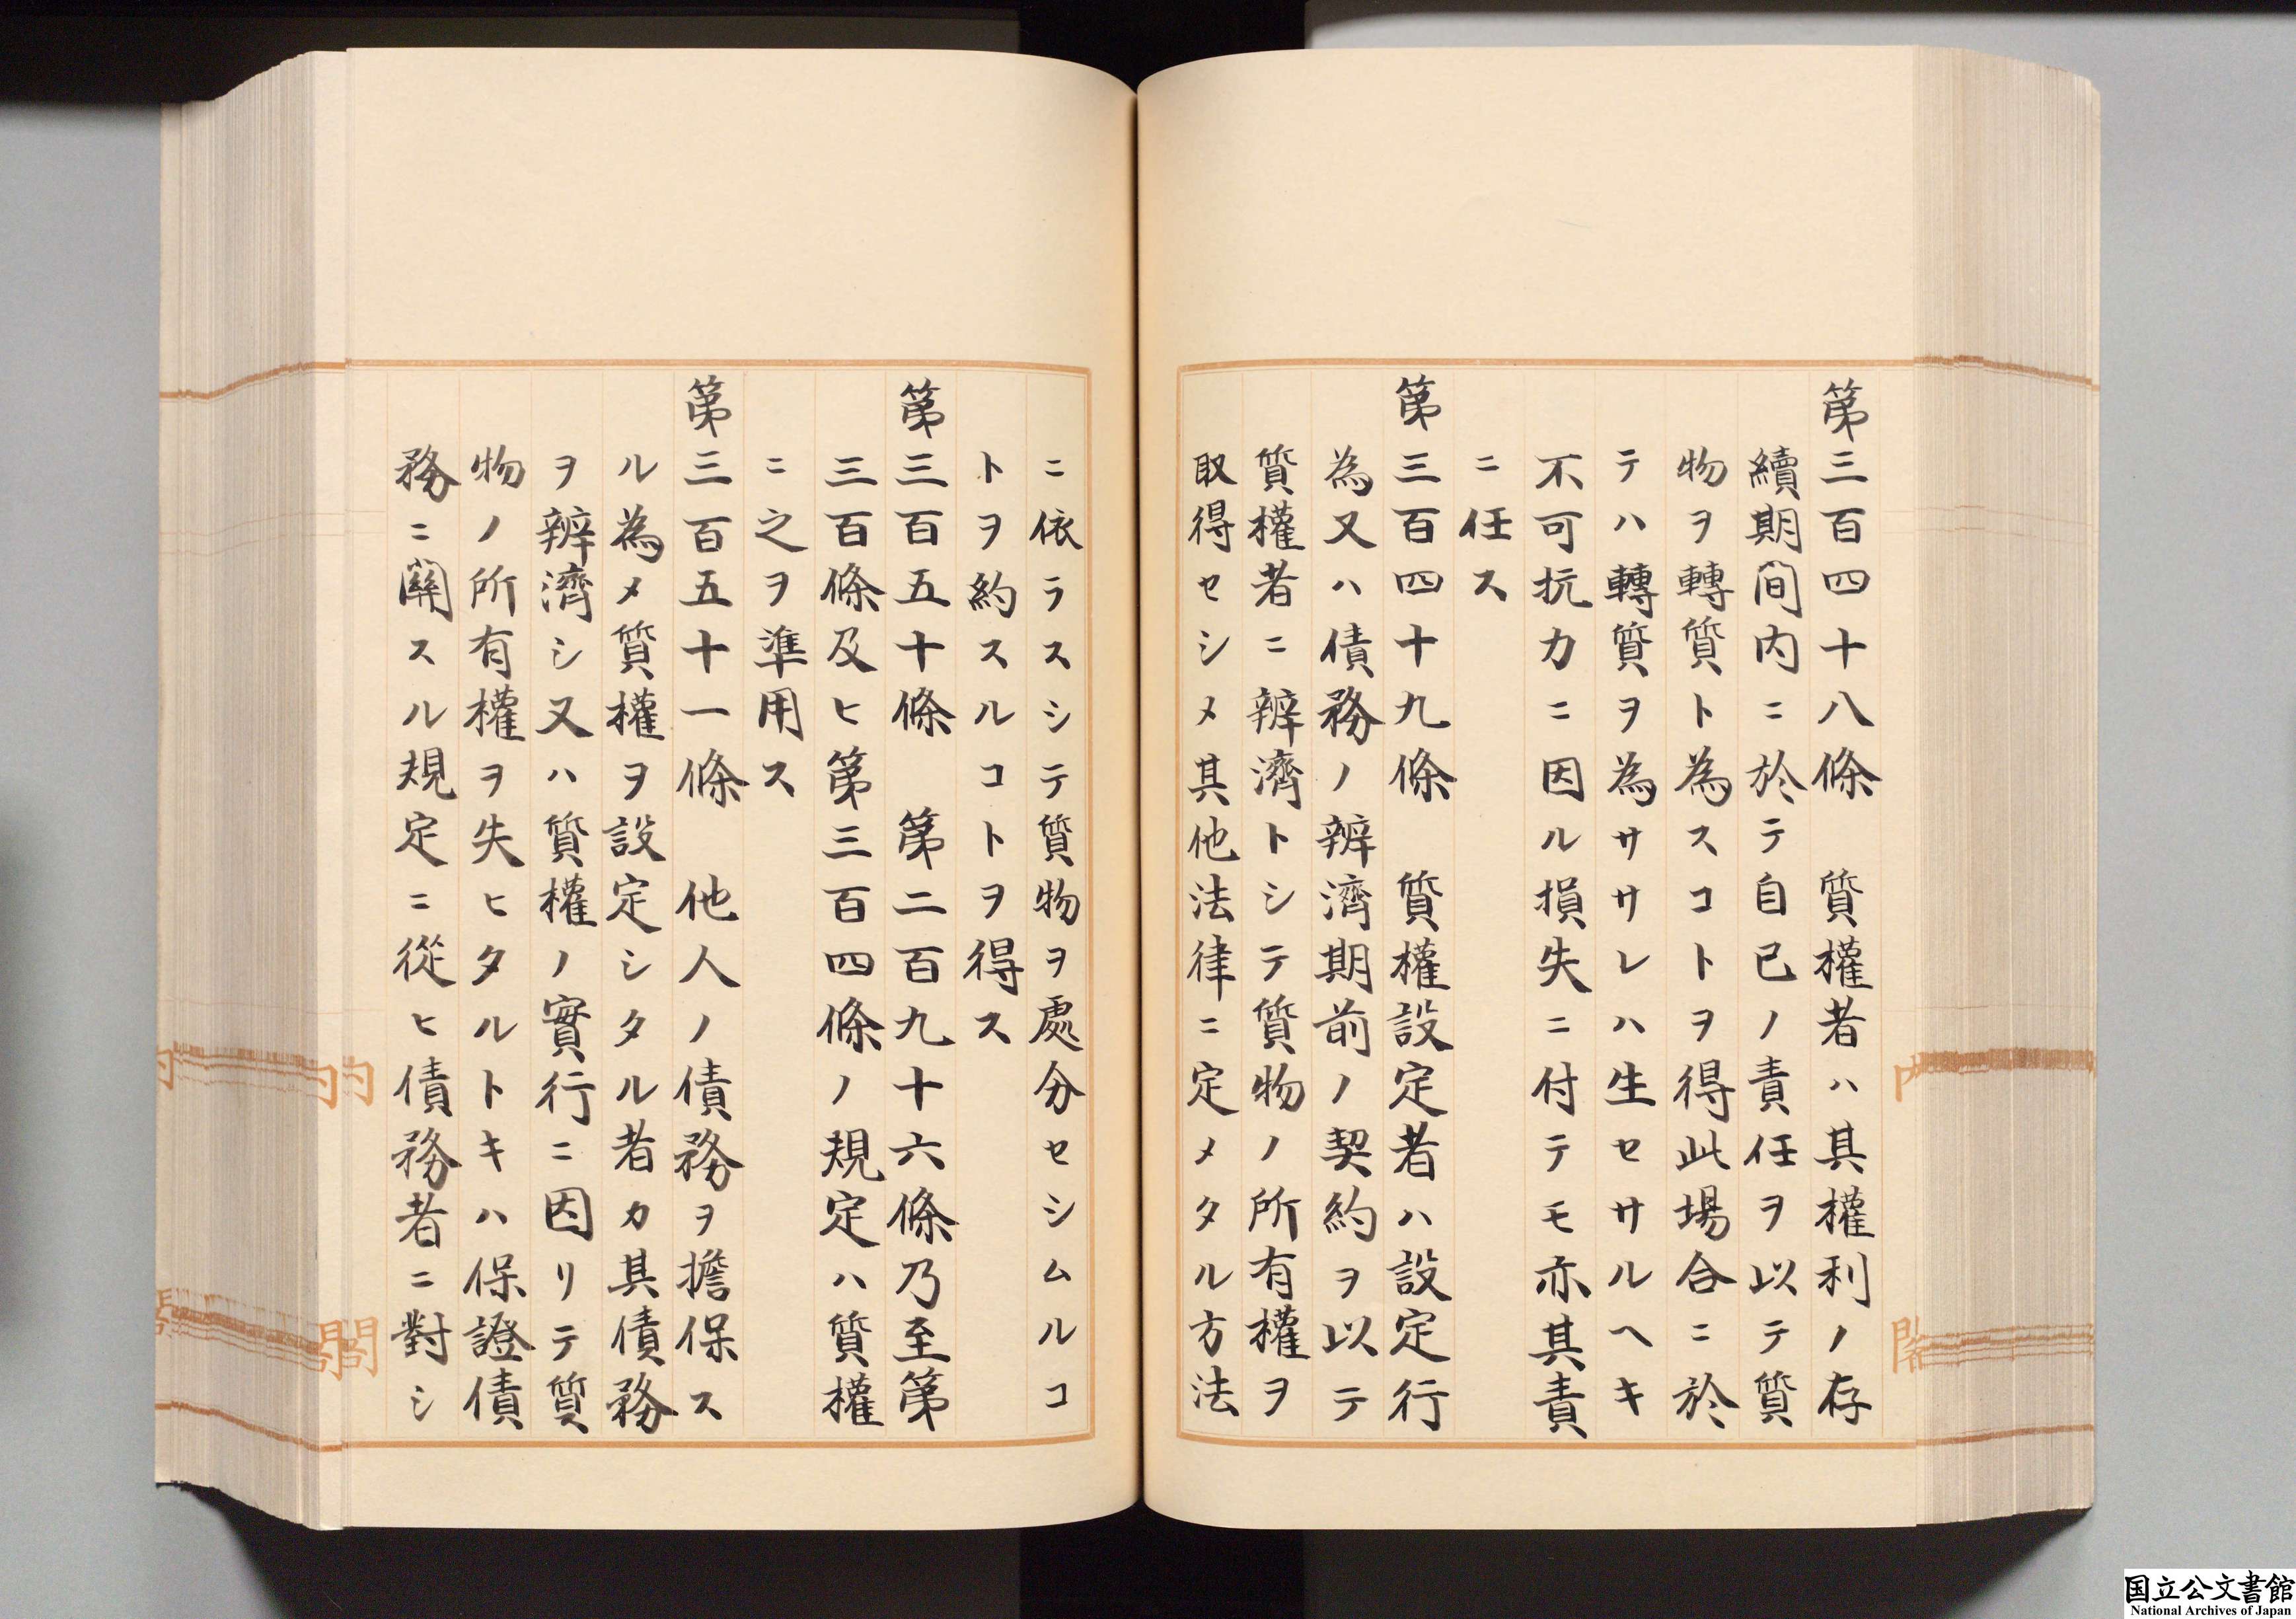 第三百四十八條　質權者ハ其權利ノ存
續期間内ニ於テ自己ノ責任ヲ以テ質
物ヲ轉質ト為スコトヲ得此場合ニ於
テハ轉質ヲ為ササレハ生セサルヘキ
不可抗力ニ因ル損失ニ付テモ亦其責
ニ任ス
第三百四十九條　質權設定者ハ設定行
為又ハ債務ノ辨濟期前ノ契約ヲ以テ
質權者ニ辨濟トシテ質物ノ所有權ヲ
取得セシメ其他法律ニ定メタル方法
ニ依ラスシテ質物ヲ處分セシムルコ
トヲ約スルコトヲ得ス
第三百五十條　第二百九十六條乃至第
三百條及ヒ第三百四條ノ規定ハ質權
ニ之ヲ準用ス
第三百五十一條　他人ノ債務ヲ擔保ス
ル為メ質權ヲ設定シタル者カ其債務
ヲ辨濟シ又ハ質權ノ實行ニ因リテ質
物ノ所有權ヲ失ヒタルトキハ保證債
務ニ關スル規定ニ從ヒ債務者ニ對シ
国立公文書館
National Archives of Japan